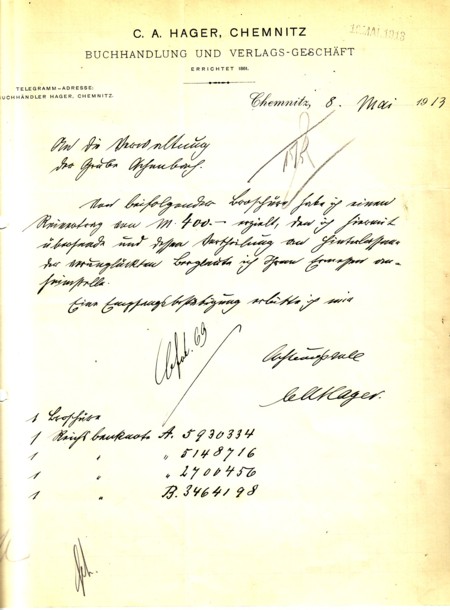 C. A. HAGER, CHEMNITZ
BUCHHANDLUNG UND VERLAGS-GESCHÄFT
ERRICHTET 1881.
MAI 1913
TELEGRAMM-ADRESSE:
BUCHHÄNDLER HAGER, CHEMNITZ.
Chemnitz, 8. Mai 1913
An die Verwaltung
der Grube Achenbach.
Von beifolgender Broschüre habe ich einen
Reinertrag von M 400.- erzielt, den ich hiermit
übersende und dessen Verteilung an Hinterlassene
der verunglückten Bergleute ich Ihrem Ermessen an-
heimstelle.
Eine Empfangsbestätigung erbitte ich mir
69
Achtungsvoll
C A Hager.
1 Broschüre
1 Reichsbanknote A. 5930334
1 " " 5148716
1 " " 2700456
1 " B. 3464198